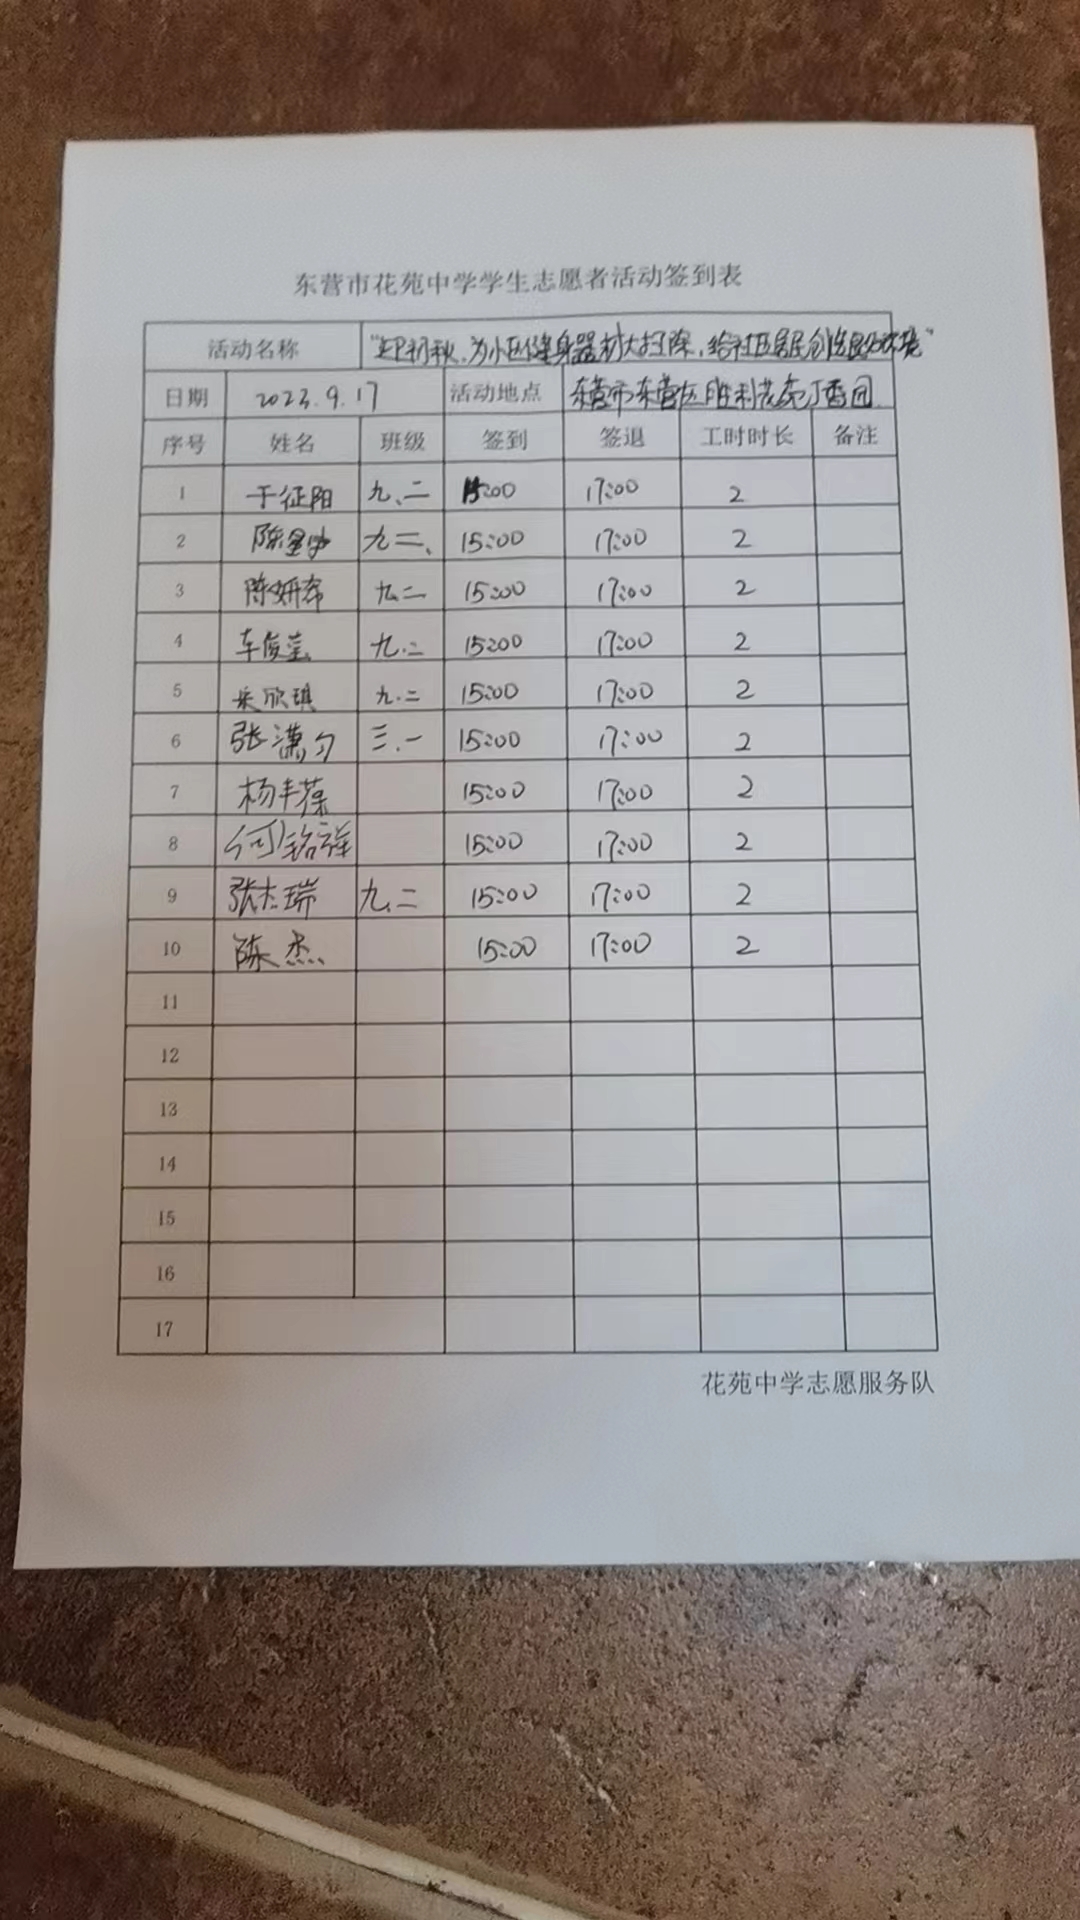 东营市花苑中学学生志愿者活动签到表
活动名称 "迎初秋,为小区健身器材大扫除,给社区居民创造良好环境"
日期 2023.9.17 活动地点 东营市东营区胜利花苑丁香园
序号 姓名 班级 签到 签退 工时时长 备注
1 于征阳 九、二 15:00 17:00 2
2 陈 九二、 15:00 17:00 2
3 陈妍希 九二 15:00 17:00 2
4 车俊莹 九.二 15:00 17:00 2
5 欣琪 九.二 15:00 17:00 2
6 张潇匀 三.一 15:00 17:00 2
7 杨丰葆 15:00 17:00 2
8 何铭祥 15:00 17:00 2
9 张杰瑞 九.二 15:00 17:00 2
10 陈杰 15:00 17:00 2
11
12
13
14
15
16
17
花苑中学志愿服务队